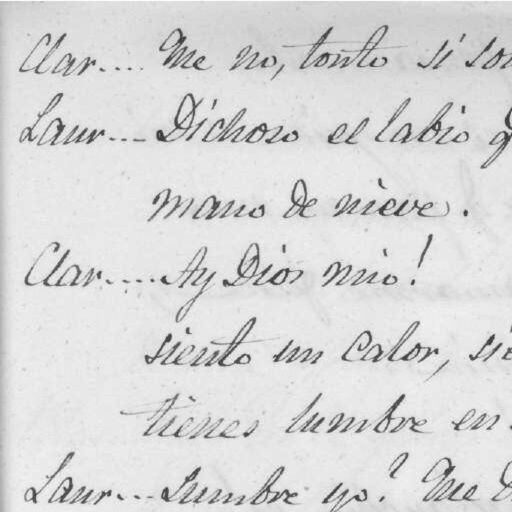 Clar.... Que no, tonto si son
Laur... Dichoso el labio q
mano de nieve.
Clar..... Ay Dios mio!
siento un calor, sie
tienes lumbre en
Laur... Lumbre yo? Que